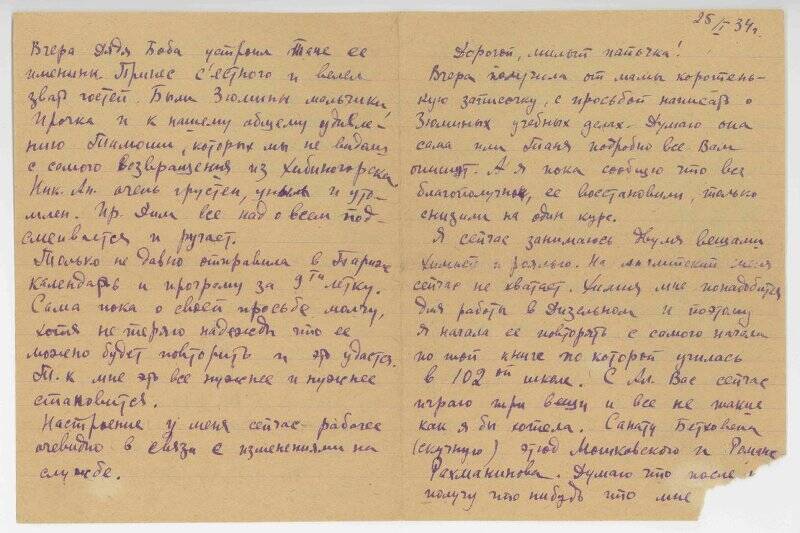 25/I 34 г.
Дорогой, милый папочка!
Вчера получила от мамы коротень-
кую записочку, с просьбой написать о
Зюминых учебных делах. Думаю она
сама или Таня подробно все Вам
опишет. А я пока сообщу что все
благополучно, ее восстановили, только
снизили на один курс.
Я сейчас занимаюсь двумя вещами
химией и роялью. На английский меня
сейчас не хватает. Химия мне понадобится
для работы в Дизельном и поэтому
я начала ее повторять с самого начала
по той книге по которой училась
в 102ой школе. С Ал. Вас сейчас
играю три вещи и все не такие
как я бы хотела. Санату Бетховена
(скучную) этюд Мошковского и Романс
Рахманинова. Думаю что после
получу что нибудь что мне
Вчера дядя Боба устроил Тане ее
именины. Принес с'естного и велел
звать гостей. Были Зюмины мальчики,
Ирочка и к нашему общему удивле-
нию Тамоши, которых мы не видали
с самого возвращения из Хибиногорска.
Ник. Ан. очень грустен, уныл и уто-
млен. Ир. Дим все над о всем под-
смеивается и ругает.
Только не давно отправила в Париж
календарь и прогрому за 9ти летку.
Сама пока о своей просьбе молчу,
хотя не теряю надежды что ее
можно будет повторить и это удастся.
Т. к мне это все нужнее и нужнее
становится.
Настроение у меня сейчас рабочее
очевидно в связи с изменениями на
службе.